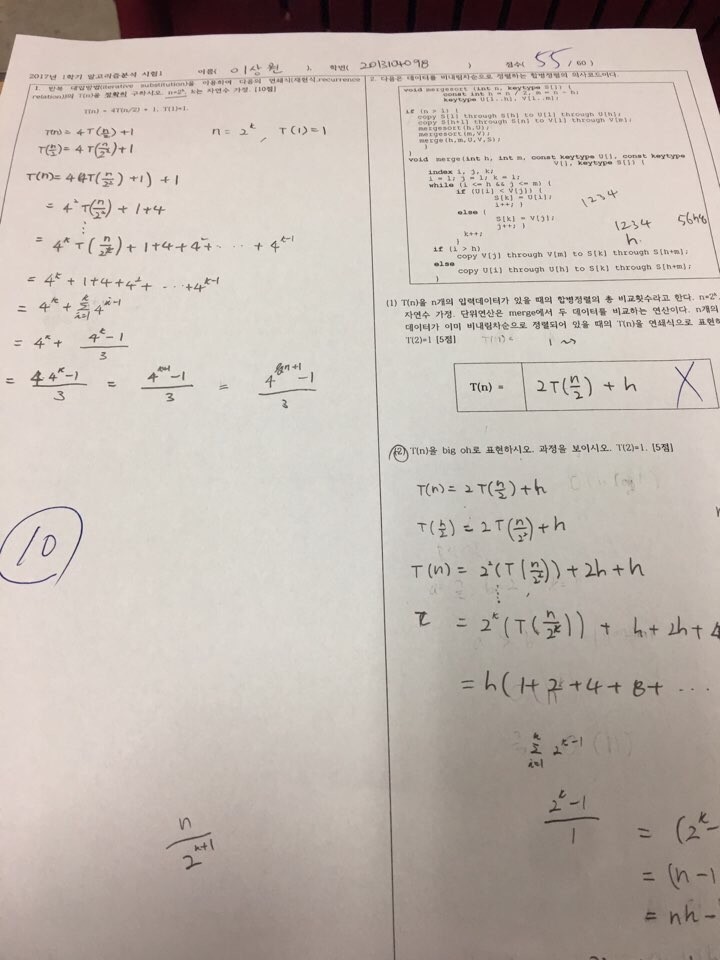 2017년 1학기 알고리즘분석 시험1 이름( 이상원 ), 학번( 2013104098 ) 점수( 55 /60 )
1. 반복 대입방법(iterative substitution)을 이용하여 다음의 연쇄식(재현식,recurrence
relation)의 T(n)을 정확히 구하시오. n=2^k, k는 자연수 가정. [10점]
T(n) = 4T(n/2) + 1, T(1)=1.
T(n) = 4T(n/2) + 1 n = 2^k, T(1) = 1
T(n/2) = 4T(n/2^2) + 1
T(n) = 4(4T(n/2^2) + 1) + 1
= 4^2 T(n/2^2) + 1 + 4
⋮
= 4^k T(n/2^k) + 1 + 4 + 4^2 + ... + 4^(k-1)
= 4^k + 1 + 4 + 4^2 + ... + 4^(k-1)
= 4^k + Σ_(i=1)^k 4^(i-1)
= 4^k + (4^k - 1)/3
= (4·4^k - 1)/3 = (4^(k+1) - 1)/3 =
10
n/2^(n+1)
2. 다음은 데이터를 비내림차순으로 정렬하는 합병정렬의 의사코드이다.
void mergesort (int n, keytype S[]) {
const int h = n / 2, m = n - h;
keytype U[1..h], V[1..m];
if (n > 1) {
copy S[1] through S[h] to U[1] through U[h];
copy S[h+1] through S[n] to V[1] through V[m];
mergesort(h,U);
mergesort(m,V);
merge(h,m,U,V,S);
}
}
void merge(int h, int m, const keytype U[], const keytype
V[], keytype S[]) {
index i, j, k;
i = 1; j = 1; k = 1;
while (i <= h && j <= m) {
if (U[i] < V[j]) {
S[k] = U[i];
i++; }
else {
S[k] = V[j];
j++; }
k++;
}
if (i > h)
copy V[j] through V[m] to S[k] through S[h+m];
else
copy U[i] through U[h] to S[k] through S[h+m];
1234
1234 5678
h.
(1) T(n)을 n개의 입력데이터가 있을 때의 합병정렬의 총 비교횟수라고 한다. n=2^k,
자연수 가정. 단위연산은 merge에서 두 데이터를 비교하는 연산이다. n개의
데이터가 이미 비내림차순으로 정렬되어 있을 때의 T(n)을 연쇄식으로 표현하
T(2)=1 [5점]
T(n) = 2T(n/2) + h X
(2) T(n)을 big oh로 표현하시오. 과정을 보이시오. T(2)=1. [5점]
T(n) = 2T(n/2) + h
T(n/2) = 2T(n/2^2) + h
T(n) = 2^2(T(n/2^2)) + 2h + h
⋮
= 2^k(T(n/2^k)) + h + 2h + 4
= h(1 + 2 + 4 + 8 + ...
Σ_(i=1)^k 2^(k-1)
(2^k - 1)/1 = (2^k -
= (n - 1
= nh -